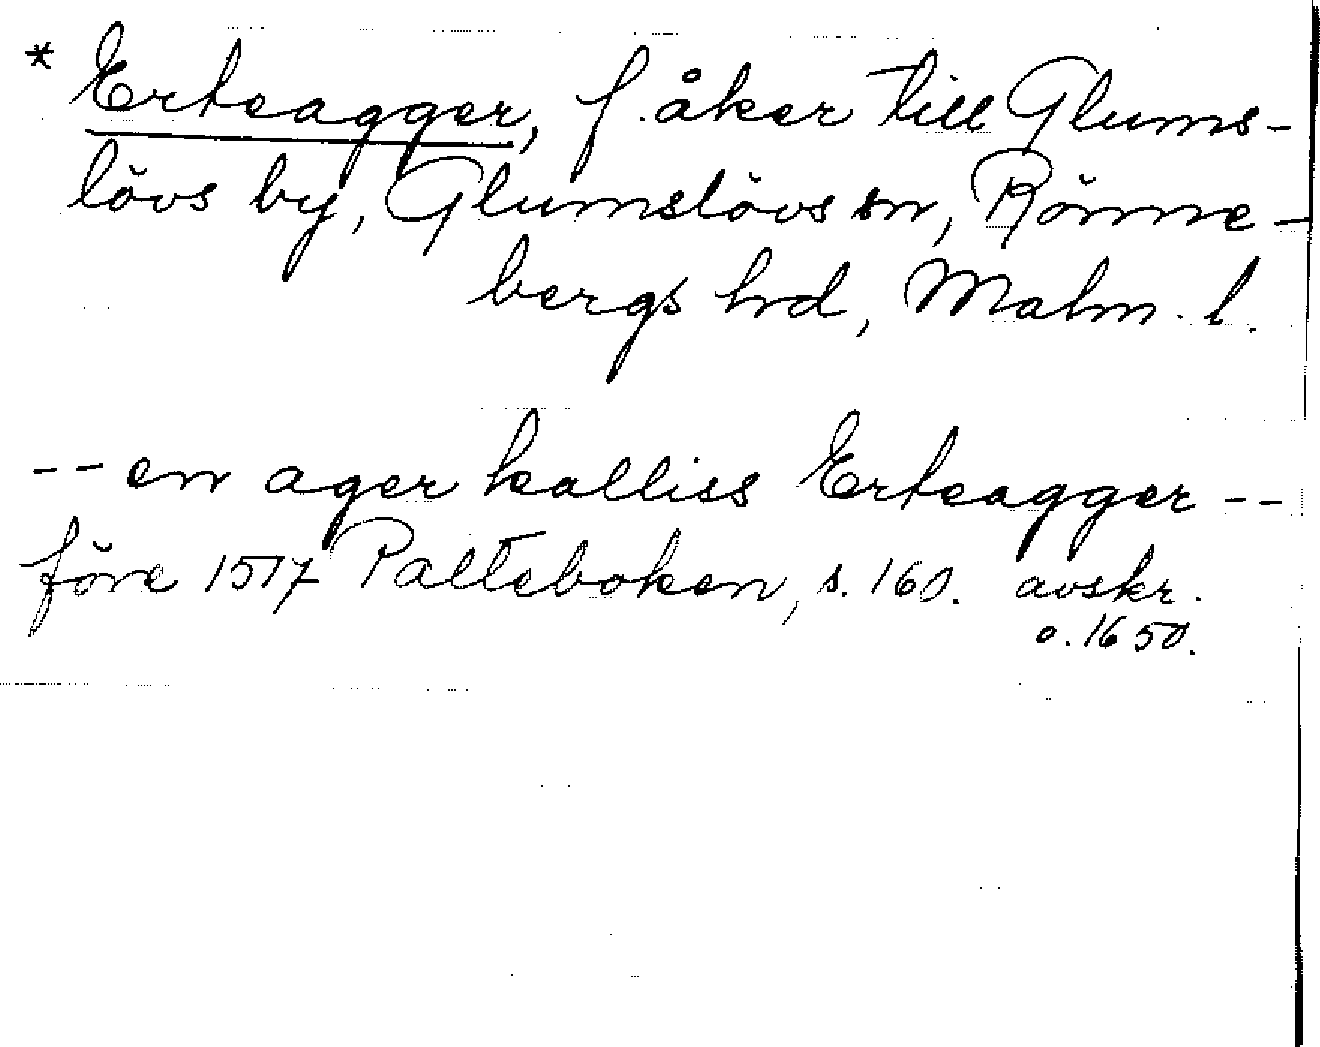 * Erteagger, f. åker till Glums-
lövs by, Glumslövs sn, Rönne-
bergs hrd, Malm. l.
-- en ager kalliss Erteagger --
före 1517 Palteboken, s. 160. avskr.
o. 1650.